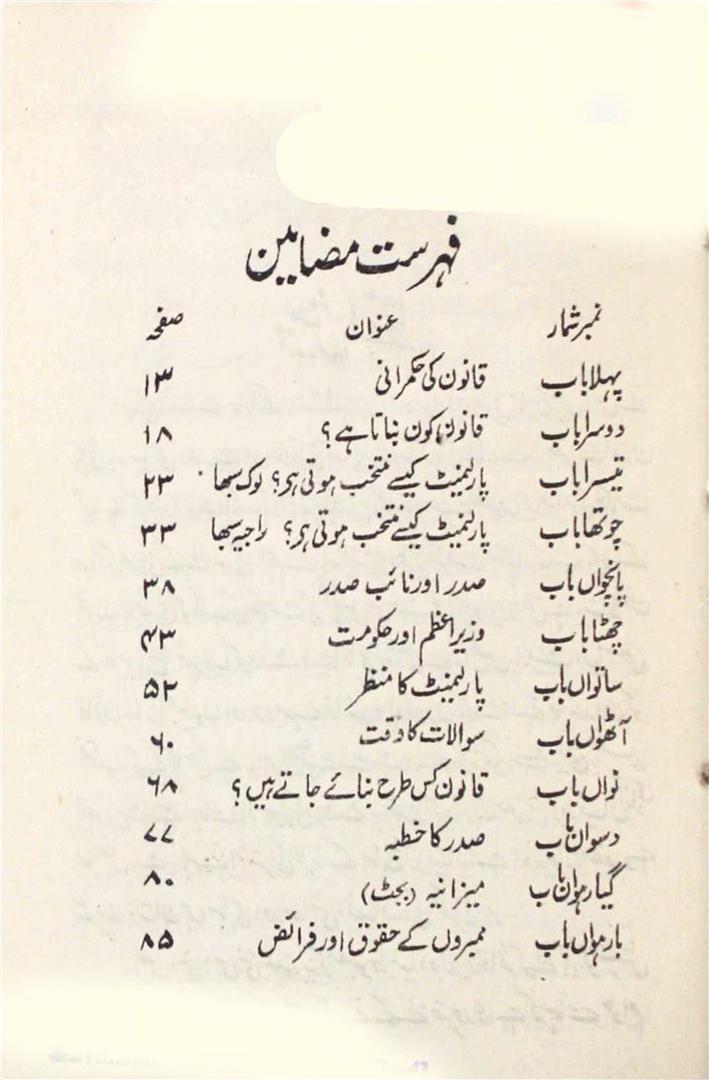 فہرست مضامین
نمبر شمار عنوان صفحہ
پہلا باب قانون کی حکمرانی ۱۳
دوسرا باب قانون کون بناتا ہے؟ ۱۸
تیسرا باب پارلیمنٹ کیسے منتخب ہوتی ہے؟ لوک سبھا ۲۳
چوتھا باب پارلیمنٹ کیسے منتخب ہوتی ہے؟ راجیہ سبھا ۳۳
پانچواں باب صدر اور نائب صدر ۳۸
چھٹا باب وزیر اعظم اور حکومت ۴۳
ساتواں باب پارلیمنٹ کا منظر ۵۲
آٹھواں باب سوالات کا وقت ۶۰
نواں باب قانون کس طرح بنائے جاتے ہیں؟ ۶۸
دسواں باب صدر کا خطبہ ۷۷
گیارہواں باب میزانیہ (بجٹ) ۸۰
بارہواں باب ممبروں کے حقوق اور فرائض ۸۵